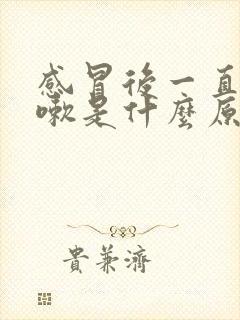 感冒後一直
嗽是什麼原
貴兼濟